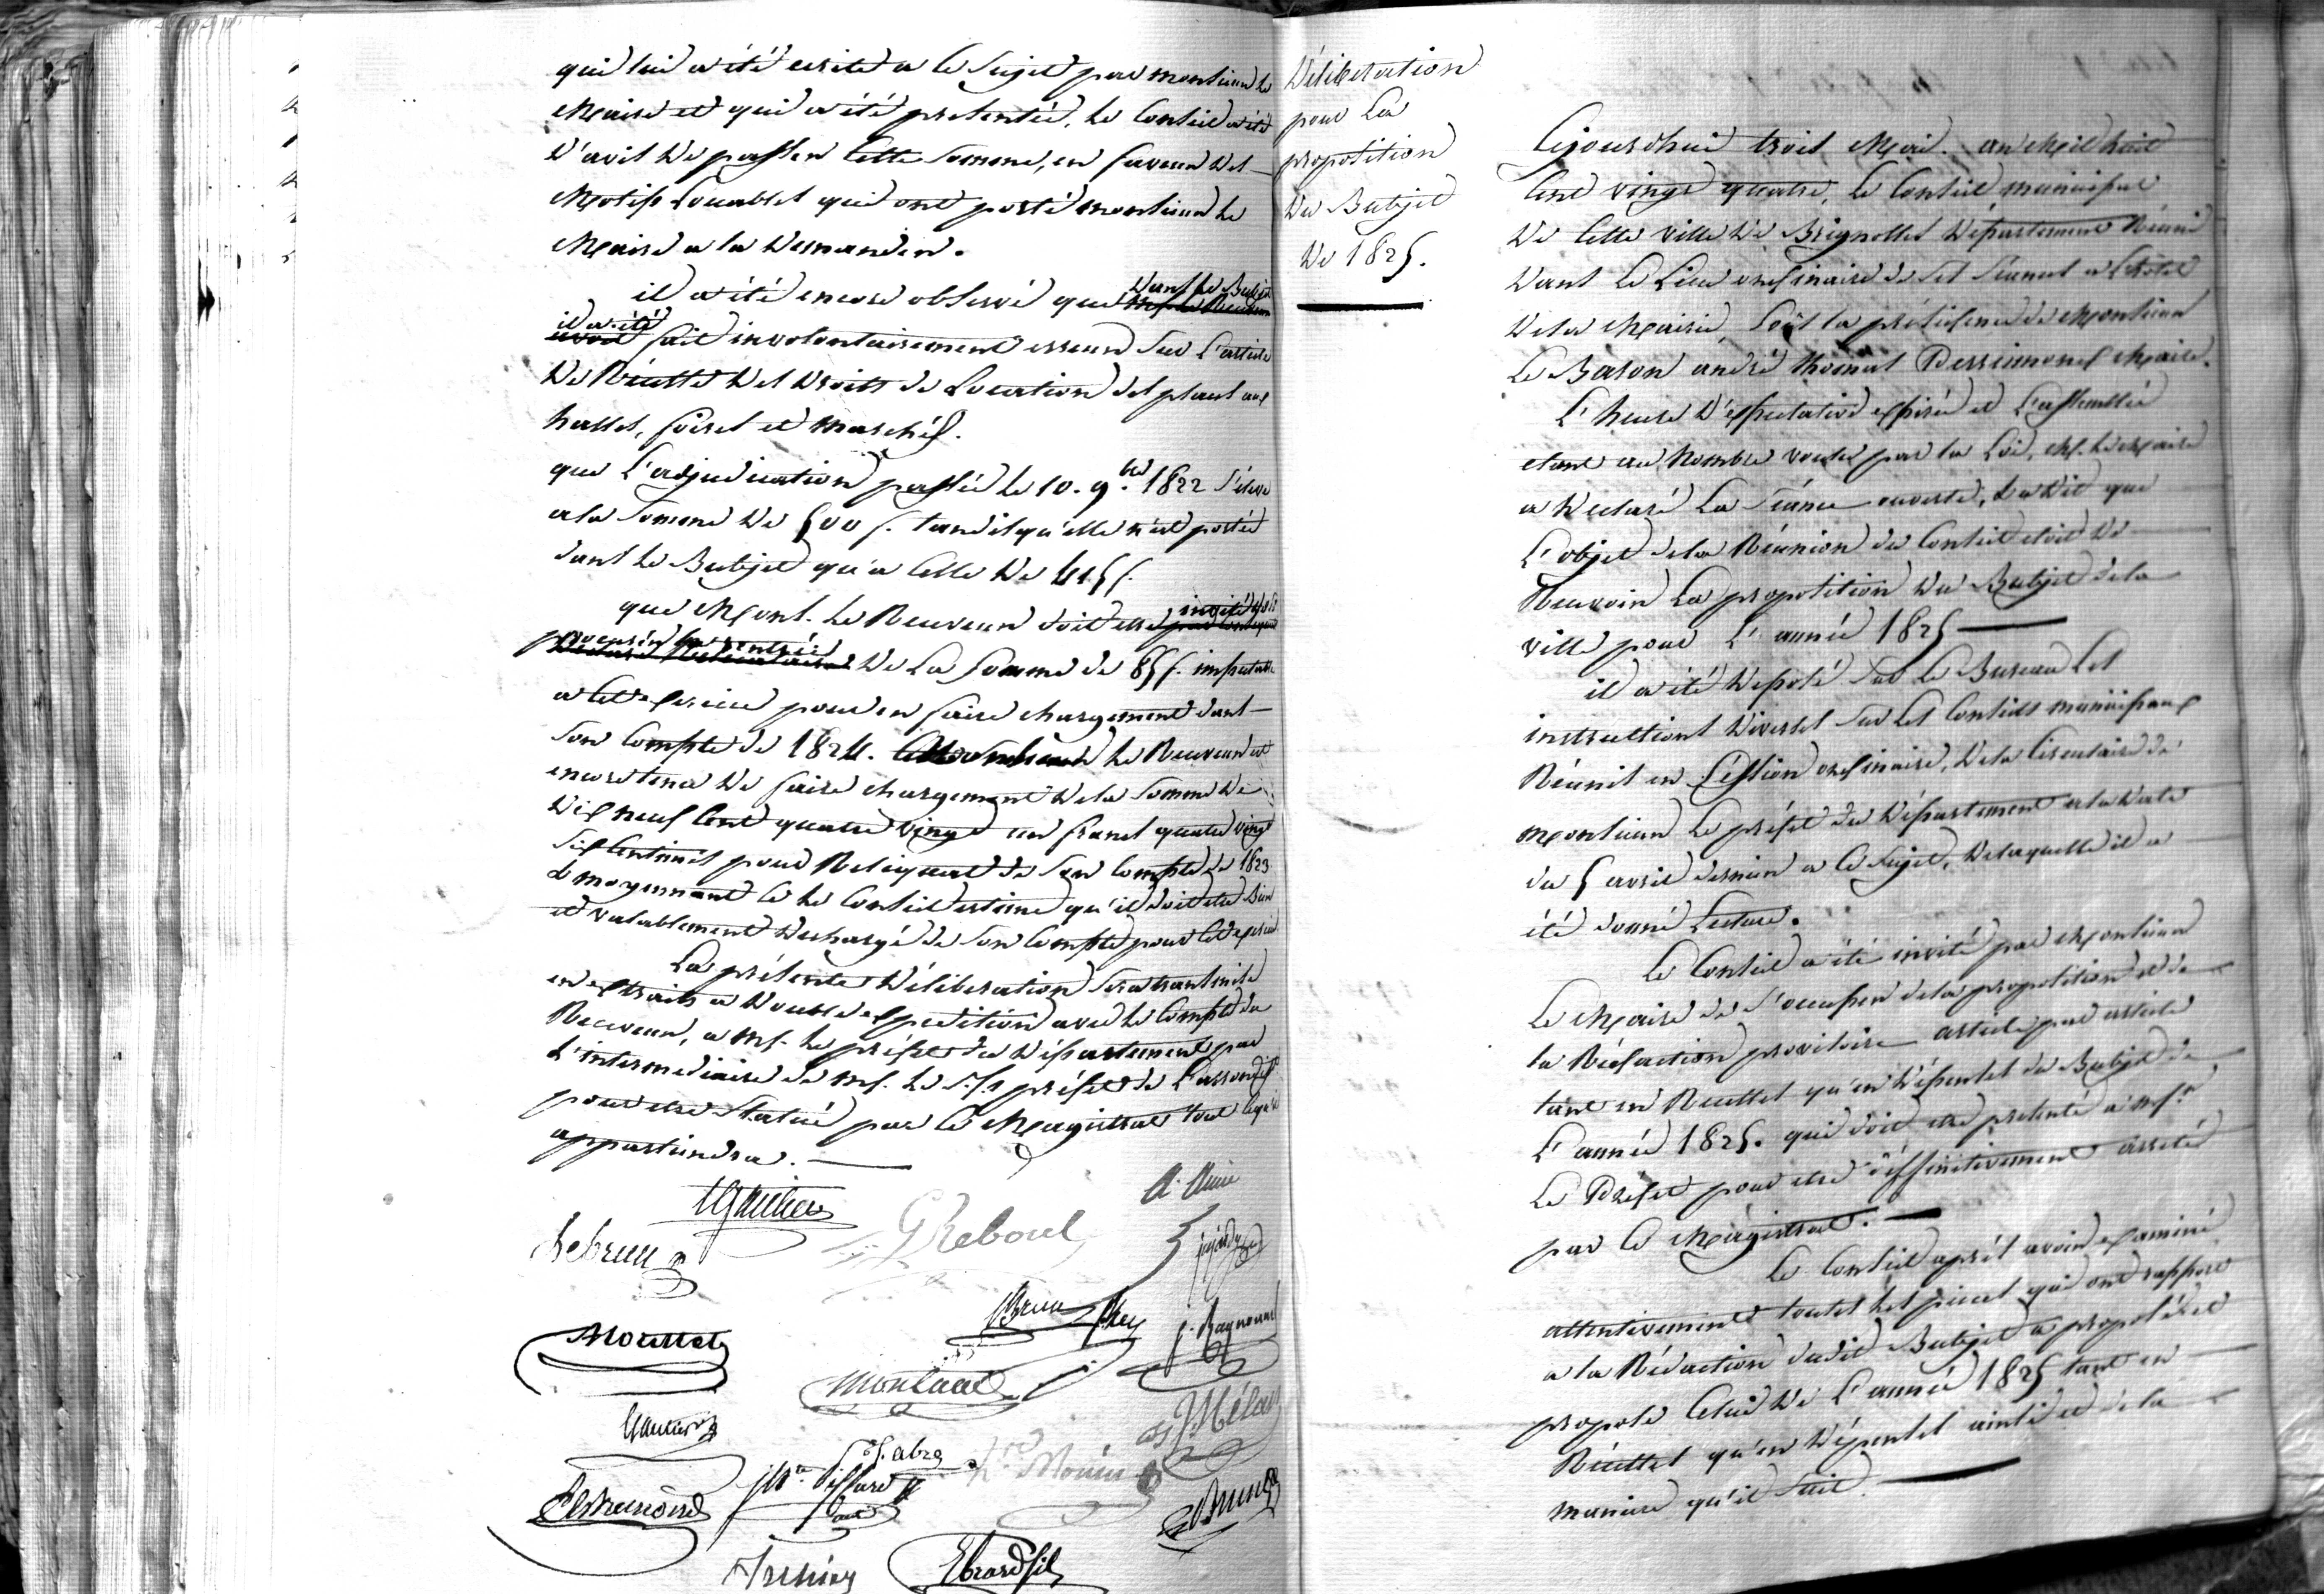 qui lui a été cedée a ce sujet par monsieur le
Maire et qui a été presentée, le Conseil a été
d'avis de passer cette somme, en faveur des
Motifs Louables qui ont porté monsieur le
Maire a la demander.
il a été encore observé que dans le Budjet
il a été fait involontairement erreur sur l'article
de Récette des droits de Location des places aux
halles, foires et marchés.
que L'adjudication passée le 10. 9.bre 1822 s'éleve
a la somme de 500 f. tandis qu'elle n'est portée
dans le Budjet qu'a celle de 415 f.
que Mons. le Receveur doit etre invité a
procurer la rentrée de La somme de 85 f. imputable
a cet exercice pour en faire chargement dans
son Compte de 1824. le Receveur est
encore tenu de faire chargement de la somme de
dix neuf Cent quatre vingt un francs quatre vingt
six Centimes pour Reliquat de son Compte de 1823
& moyennant ce le Conseil estime qu'il doit etre bien
et valablement dechargé de son Compte pour cet exercice.
La présente Déliberation sera transmise
en extraits a double expedition avec le Compte du
Receveur, a mr. le préfet du Département par
L'intermediaire de mr. le S.s préfet de L'arrondisst.
pour etre statué par ce Magistrat tout ce qu'il
appartiendra.
Gautier
A. Aime
Lebrun
G Reboul
Brun
Rey
Mouttet
J. Raynouard
Montaud
Gautier
Fabre
Mélan
Monin
Brun
Fresnier
Ebrard fils
Déliberation
pour La
proposition
du Budjet
de 1825.
Cejourd'hui trois Mai. an Mil huit
Cent vingt quatre, le Conseil municipal
de Cette ville de Brignolles Département Réuni
dans Le Lieu ordinaire de ses séances a L'hotel
de la Mairie, Sous la présidence de Monsieur
Le Baron andré thomas Perrimond Maire.
L'heure d'expectative expirée et L'assemblée
etant au Nombre voulu par la Loi, M. le Maire
a declaré La séance ouverte, & a dit que
L'objet de la Réunion du Conseil etoit de
Recevoir La proposition du Budjet de la
ville pour L'année 1825
il a été déposé sur Le Bureau Les
instructions diverses sur Les Conseils municipaux
Réunis en Session ordinaire, de la Circulaire de
Monsieur Le préfet du Département a la date
du 5 avril dernier a ce sujet, de laquelle il a
été donné Lecture.
Le Conseil a été invité par Monsieur
Le Maire de s'occuper de la proposition et de
la Rédaction provisoire article par article
tant en Recettes qu'en Dépenses du Budjet de
L'année 1825. qui doit etre presenté a mr
Le Préfet pour etre déffinitivement arreté
par ce Magistrat.
Le Conseil après avoir examiné
attentivement toutes Les pieces qui ont rapport
a la Rédaction dudit Budjet a proposé et
propose Celui de L'année 1825 tant en
Récettes qu'en Dépenses ainsi et de la
maniere qu'il suit.